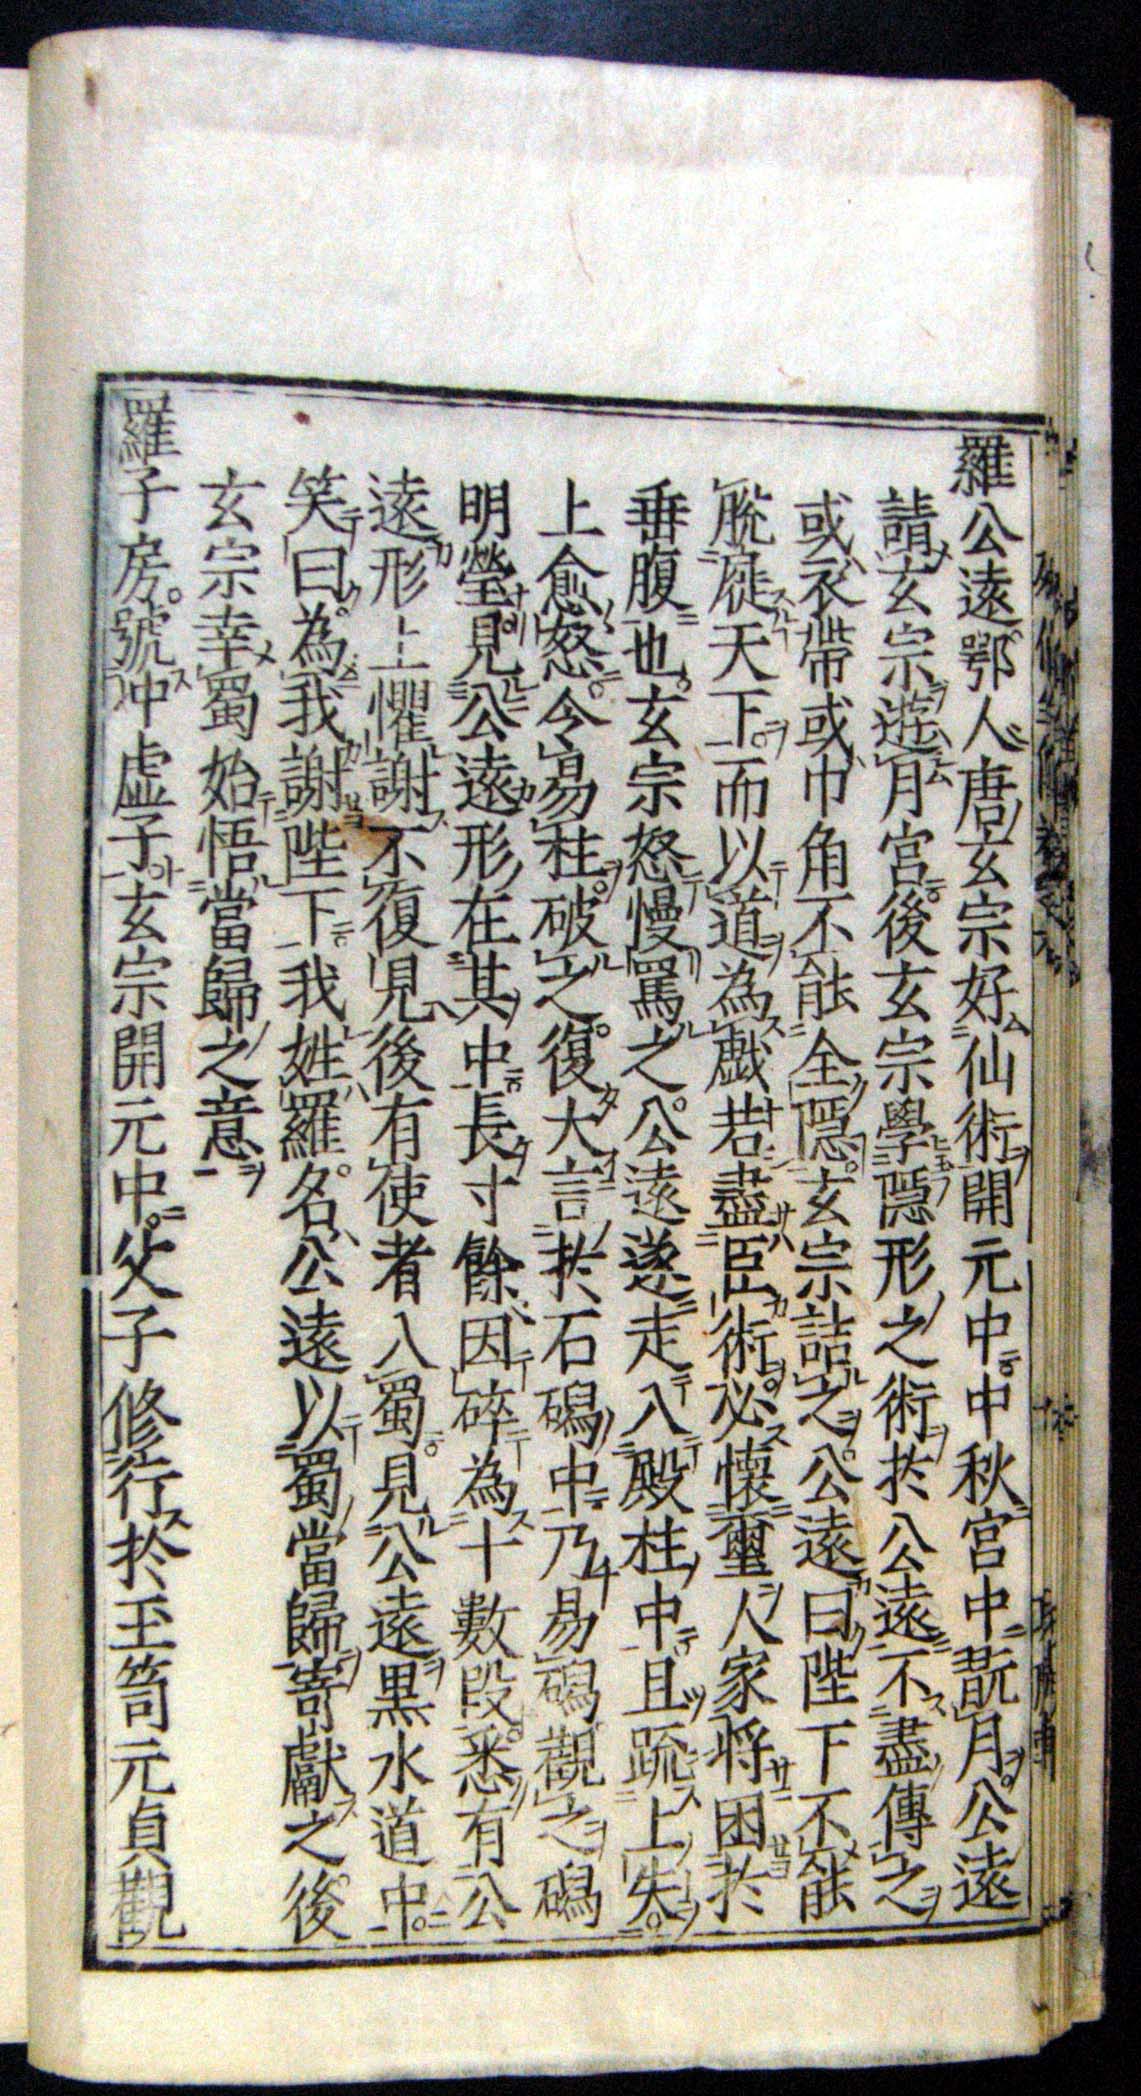 羅公遠鄂人唐玄宗好仙術開元中中秋宮中翫月公遠
請玄宗遊月宮後玄宗學隱形之術於公遠不盡傳之
或衣帶或巾角不能全隱玄宗詰之公遠曰陛下不能
脫屣天下而以道為戲若盡臣術必懷璽人家將困於
垂腹也玄宗怒慢罵之公遠遂走入殿柱中且疏上失
上愈怒令易柱破之復大言於石磶中乃易磶觀之磶
明瑩見公遠形在其中長寸餘因碎為十數段悉有公
遠形上懼謝不復見後有使者入蜀見公遠黑水道中
笑曰為我謝陛下我姓羅名公遠以蜀當歸寄獻之後
玄宗幸蜀始悟當歸之意
羅子房號冲虛子玄宗開元中父子修行於玉笥元貞觀